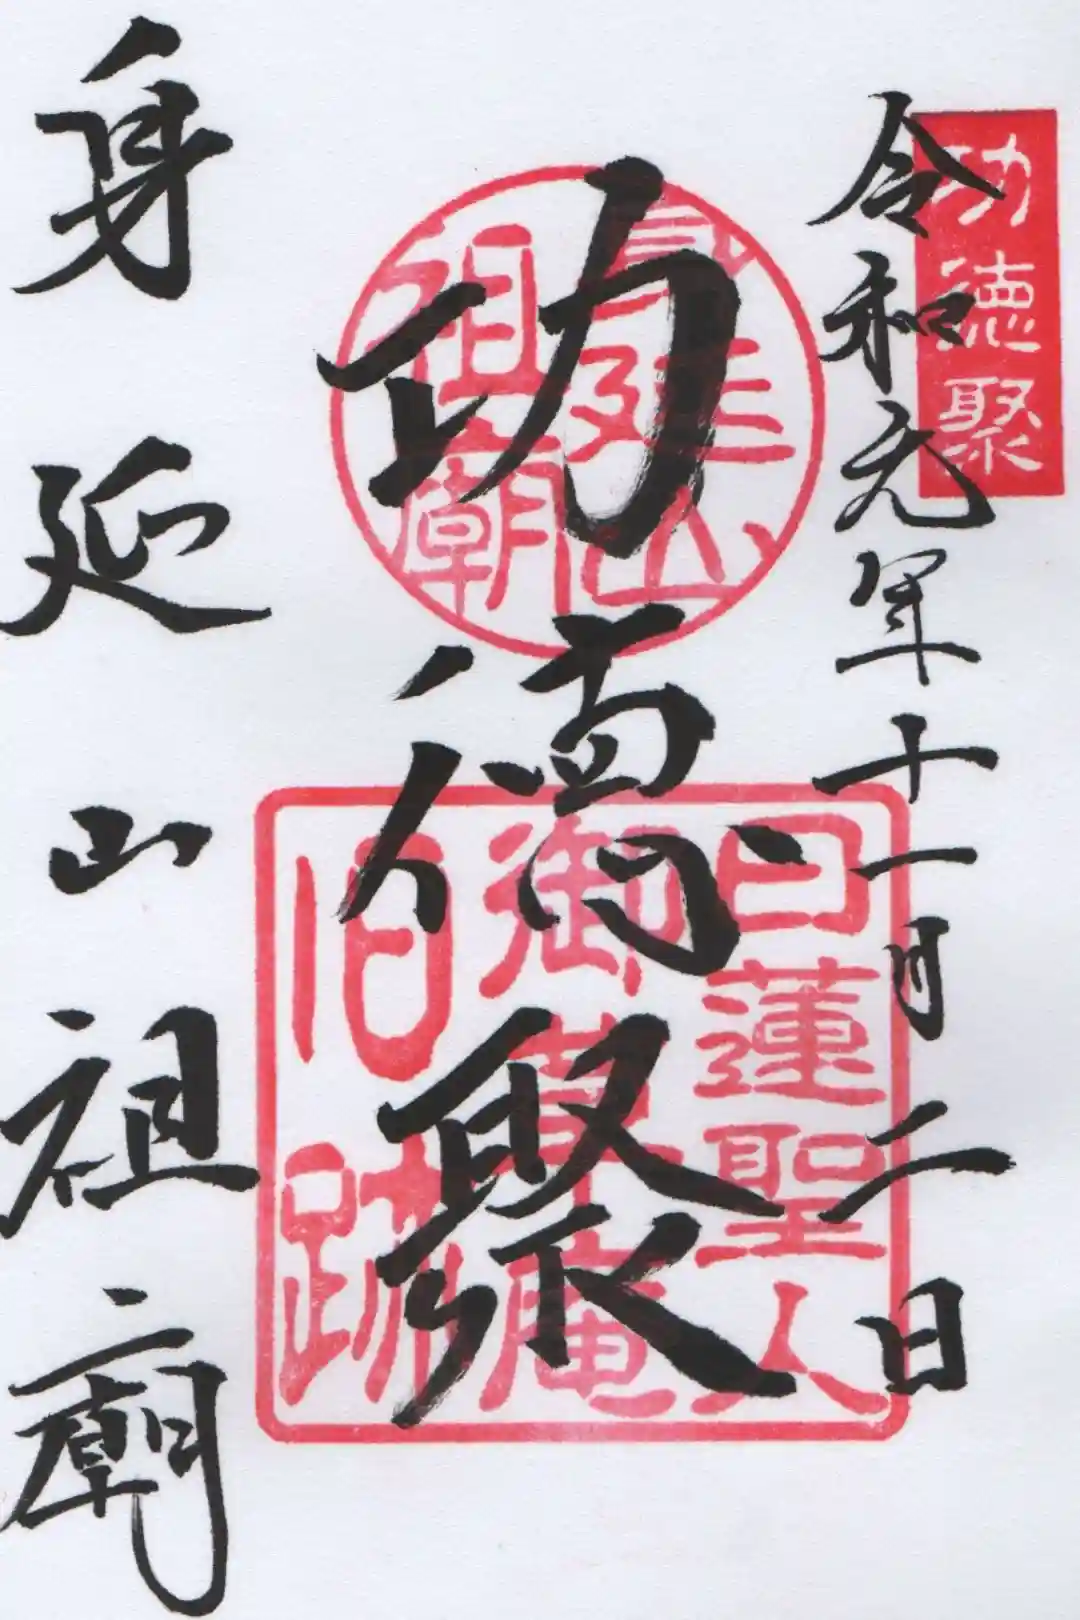 功徳聚
令和元年十一月二日
身延山
祖廟
功徳聚
日蓮聖人
御草庵
旧跡
身延山祖廟